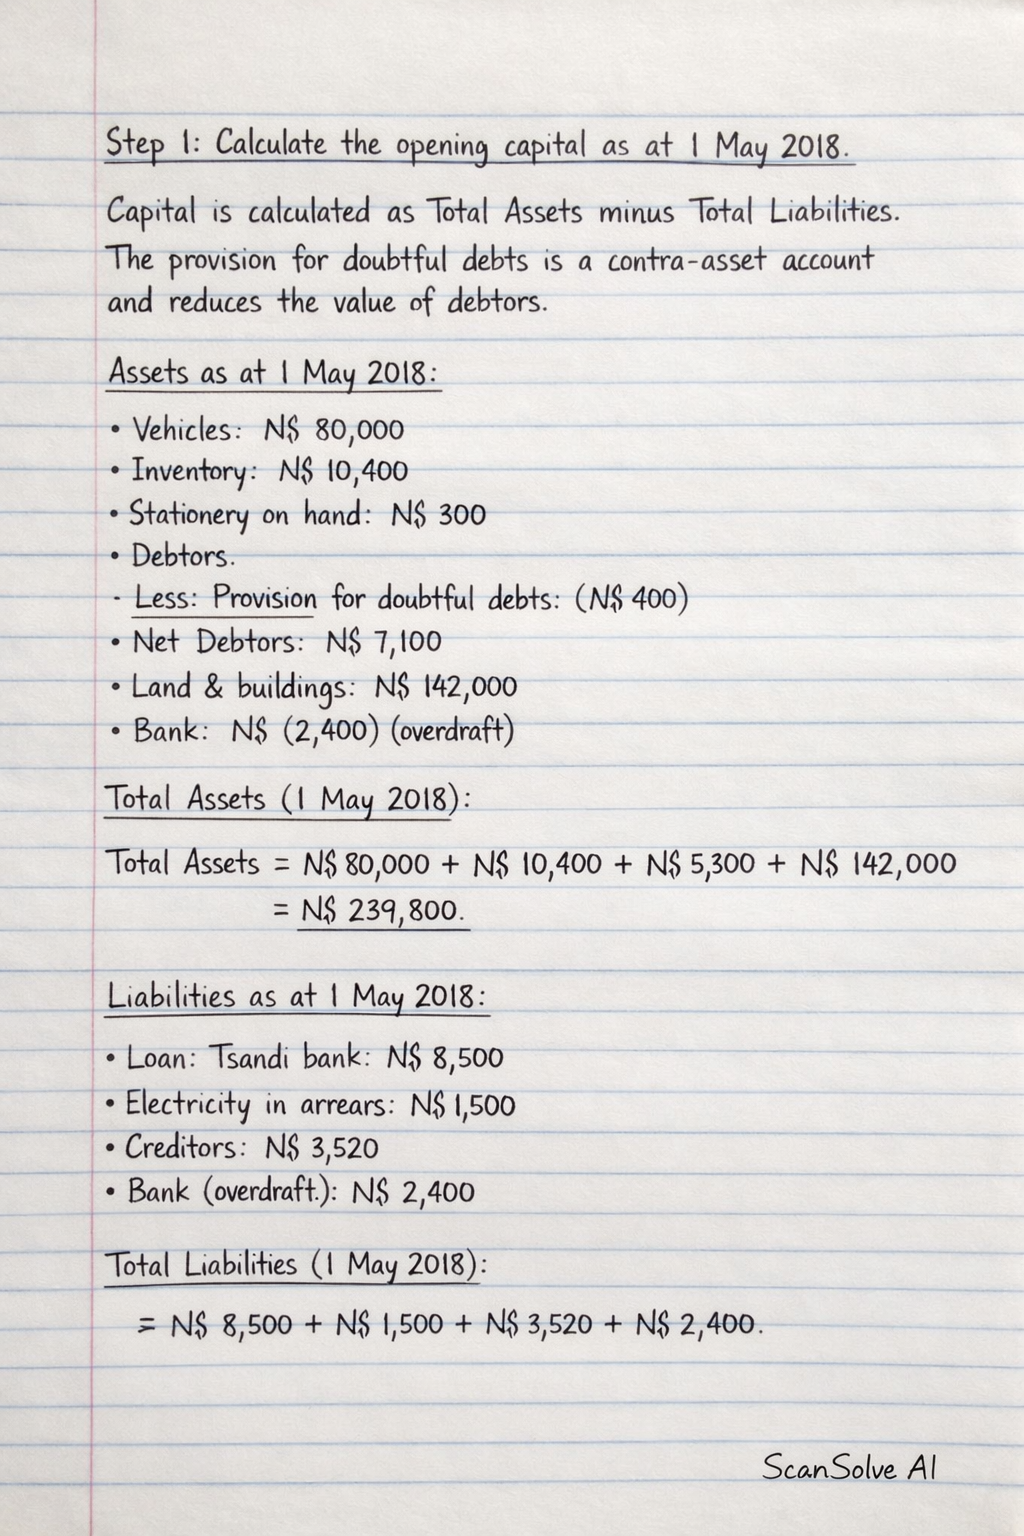 Step 1: Calculate the opening capital as at 1 May 2018.
Capital is calculated as Total Assets minus Total Liabilities.
The provision for doubtful debts is a contra-asset account
and reduces the value of debtors.
Assets as at 1 May 2018:
• Vehicles: N$ 80,000
• Inventory: N$ 10,400
• Stationery on hand: N$ 300
• Debtors.
- Less: Provision for doubtful debts: (N$ 400)
• Net Debtors: N$ 7,100
• Land & buildings: N$ 142,000
• Bank: N$ (2,400) (overdraft)
Total Assets (1 May 2018):
Total Assets = N$ 80,000 + N$ 10,400 + N$ 5,300 + N$ 142,000
= N$ 239,800.
Liabilities as at 1 May 2018:
• Loan: Tsandi bank: N$ 8,500
• Electricity in arrears: N$ 1,500
• Creditors: N$ 3,520
• Bank (overdraft.): N$ 2,400
Total Liabilities (1 May 2018):
= N$ 8,500 + N$ 1,500 + N$ 3,520 + N$ 2,400.
ScanSolve AI